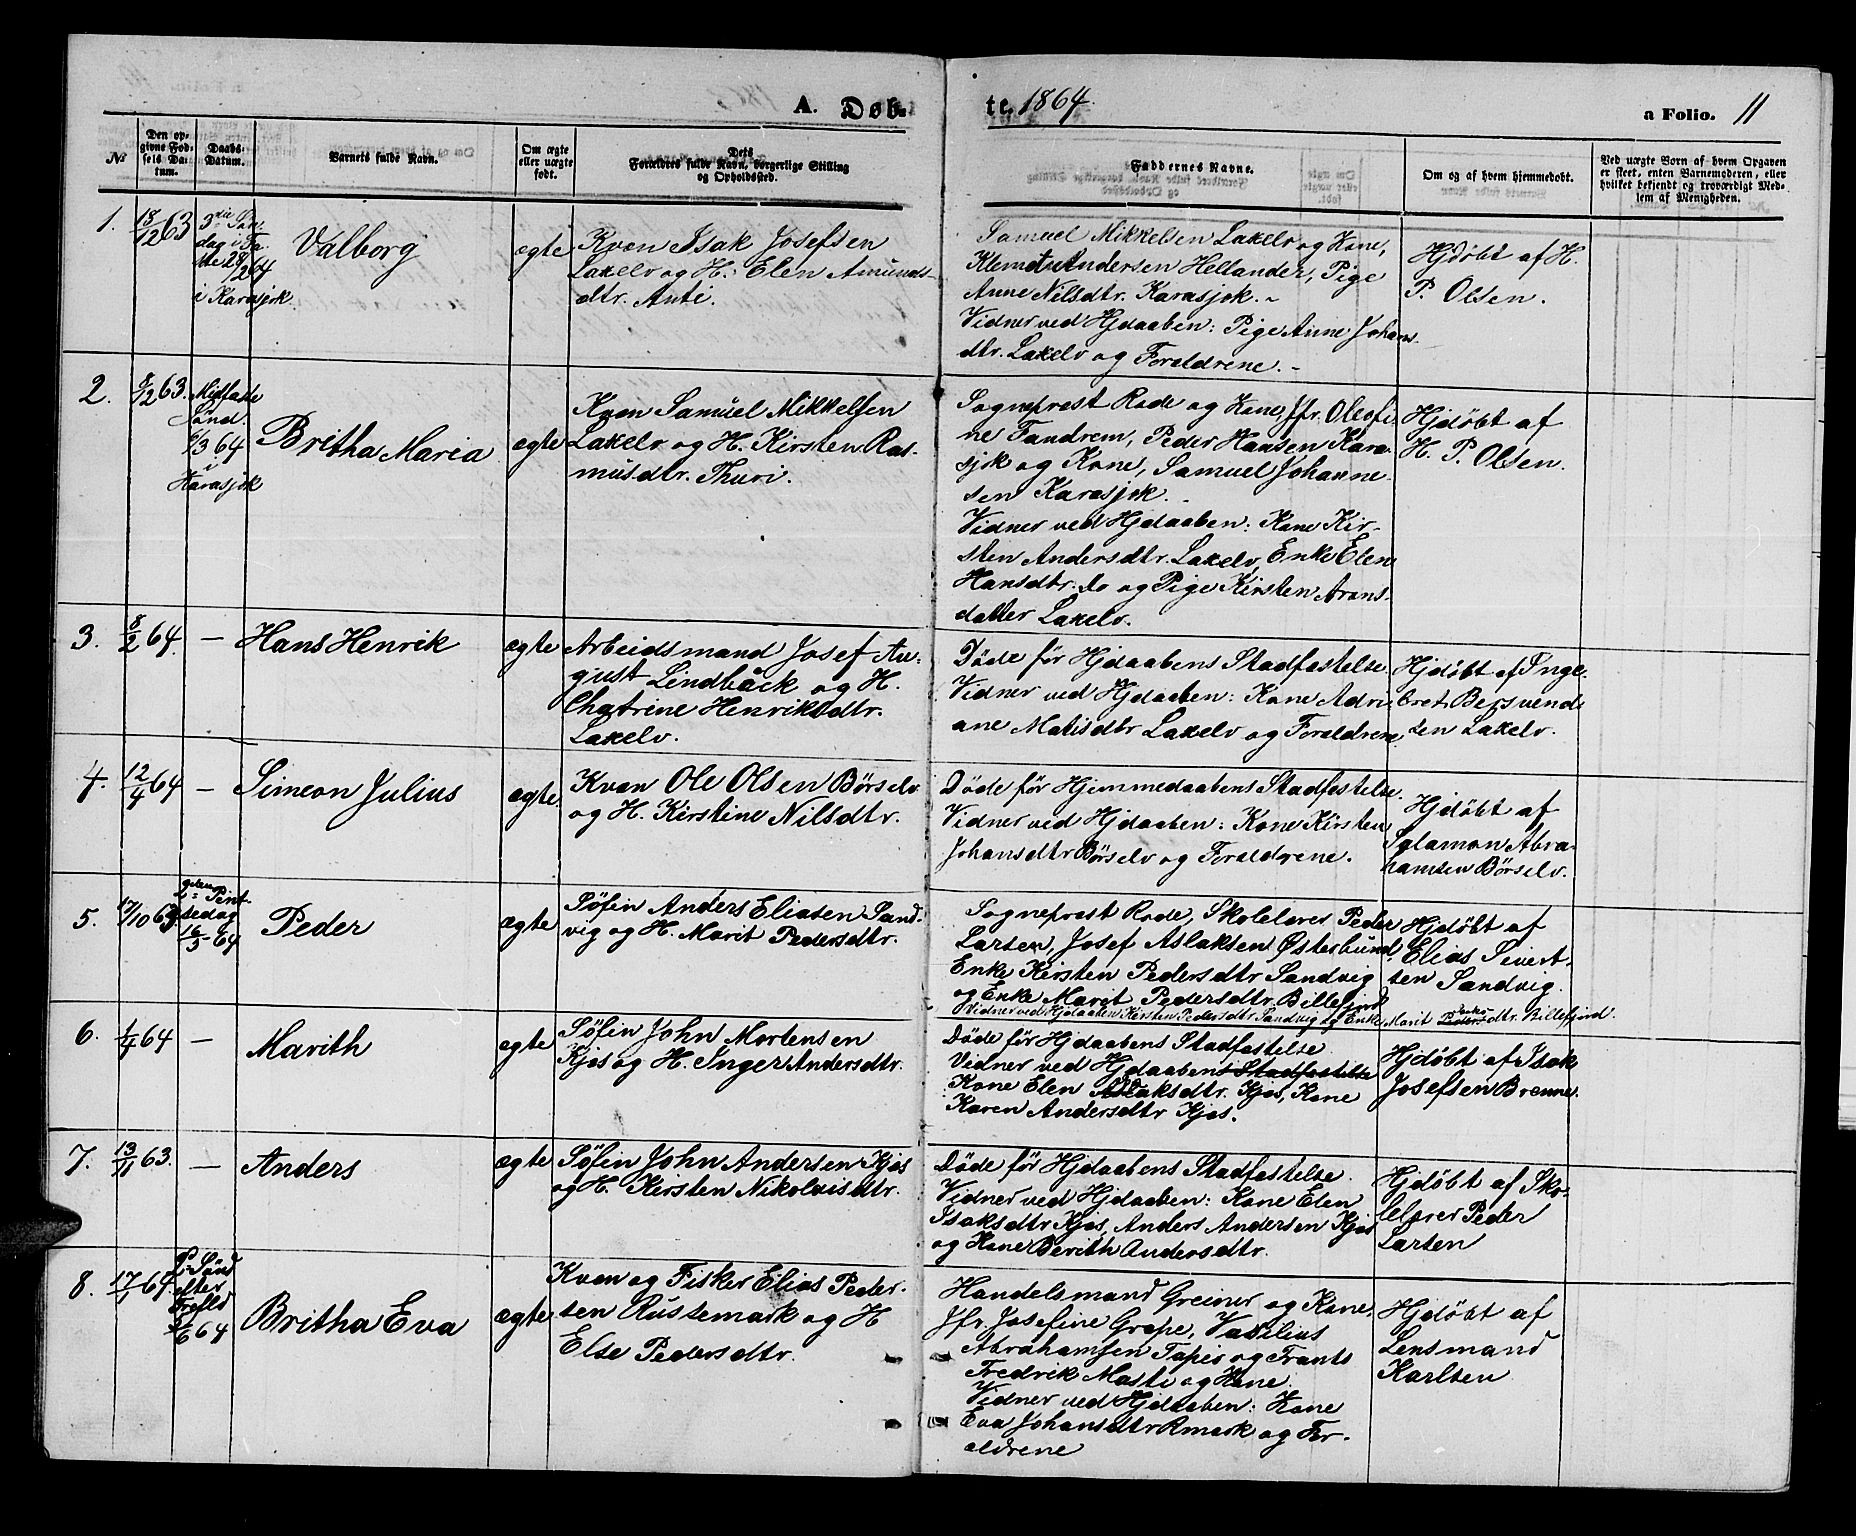 A. Døb- te. 1864. a Folio. 11
No
Den op-
givne Fød-
sels Da-
tum.
Daabs-
Datum.
Barnets fulde Navn.
Om ægte
eller uægte
født.
Dets
Forældres fulde Navn, borgerlige Stilling
og Opholdssted.
Faddernes Navne.
Om og af hvem hjemmedøbt.
Ved uægte Born af hvem Opgaven
er skeet, enten Barnemoderen, eller
hvilket bekjendt og troværdigt Med-
lem af Menigheden.
1.
18/12 63
3die Søn-
dag i Fa-
ste 28/2 64
i Karasjok.
Valborg
ægte
Kvæn Isak Josefsen
Lakelv og H. Elen Amunds-
dtr. Anti.
Samuel Mikkelsen Lakelv og Kone,
Klemet Andersen Hellander, Pige
Anne Nilsdtr. Karasjok. -
Vidner ved Hjdaaben: Pige Anne Johans-
dtr. Lakelv og Forældrene. -
Hjdøbt af H.
P. Olsen.
2.
8/12 63.
Midfaste
Sønd.
6/3 64
i
Karasjok
Britha Maria
ægte
Kvæn Samuel Mikkelsen
Lakelv og H. Kirsten Ras-
musdtr. Thuri.
Sogneprest Rode og Kone, Jfr. Oleofi-
ne Tandrem, Peder Hansen Kara-
sjok og Kone, Samuel Johanne-
sen Karasjok. -
Vidner ved Hjdaaben: Kone Kir-
sten Andersdtr. Lakelv, Enke Elen
Hansdtr. do og Pige Kirsten Arons-
datter Lakelv.
Hjdøbt af
H. P. Olsen.
3.
8/2 64.
-
Hans Henrik
ægte
Arbeidsmand Josef Au-
gust Lindbäck og H.
Chatrine Henriksdtr.
Lakelv.
Døde før Hjdaabens Stadfæstelse
Vidner ved Hjdaaben: Kone Adri-
ane Matisdtr Lakelv og Forældrene
Hjdøbt af Inge-
bret Bersvend-
sen Lakelv.
4.
12/4 64
-
Simeon Julius
ægte
Kvæn Ole Olsen Børselv
og H. Kirstine Nilsdtr.
Døde før Hjemmedaabens Stadfæstelse.
Vidner ved Hjdaaben: Kone Kirsten
Johansdtr Børselv og Forældrene.
Hjdøbt af
Salamon Abra-
hamsen Børselv.
5.
17/10 63.
2den Pint-
sedag
16/5 - 64
Peder
ægte
Søfin Anders Eliasen Sand-
vig og H. Marit Pedersdtr.
Sogneprest Rode, Skolelærer Peder
Larsen, Josef Aslaksen Østerbund,
Enke Kirsten Pedersdtr Sandvig
og Enke Marit Pedersdtr. Billefjord
Vidner ved Hjdaaben Kirsten Pedersdtr Sandvig og Enke Marit Pedersdtr. Billefjord.
Hjdøbt af
Elias Sivert-
sen Sandvig.
6.
1/4 64
-
Marith
ægte
Søfin John Mortensen
Kjæs og H. Inger Andersdtr.
Døde før Hjdaabens Stadfæstelse
Vidner ved Hjdaabens Stadfæstelse
Kone Elen Aslaksdtr. Kjæs, Kone
Karen Andersdtr Kjæs.
Hjdøbt af Isak
Josefsen Brenne.
7.
13/11 63.
-
Anders
ægte
Søfin John Andersen Kjæs
og H. Kirsten Nikolaisdtr.
Døde før Hjdaabens Stadfæstelse.
Vidner ved Hjdaaben: Kone Elen
Isaksdtr Kjæs, Anders Andersen Kjæs
og Kone Berith Andersdtr.
Hjdøbt af Sko-
lelærer Peder
Larsen
8.
17/1 64.
2. Sønd
efter
Trefld
5/6 64
Britha Eva
ægte
Kvæn og Fisker Elias Peder-
sen Russemark og H
Else Pedersdtr.
Handelsmand Greiner og Kone,
Jfr. Josefine Grape, Vasilius
Abrahamsen Tapis og Frants
Fredrik Masti og Kone.
Vidner ved Hjdaaben: Kone
Eva Johansdtr Rmark og For-
ældrene
Hjdøbt af
Lensmand
Karlsen